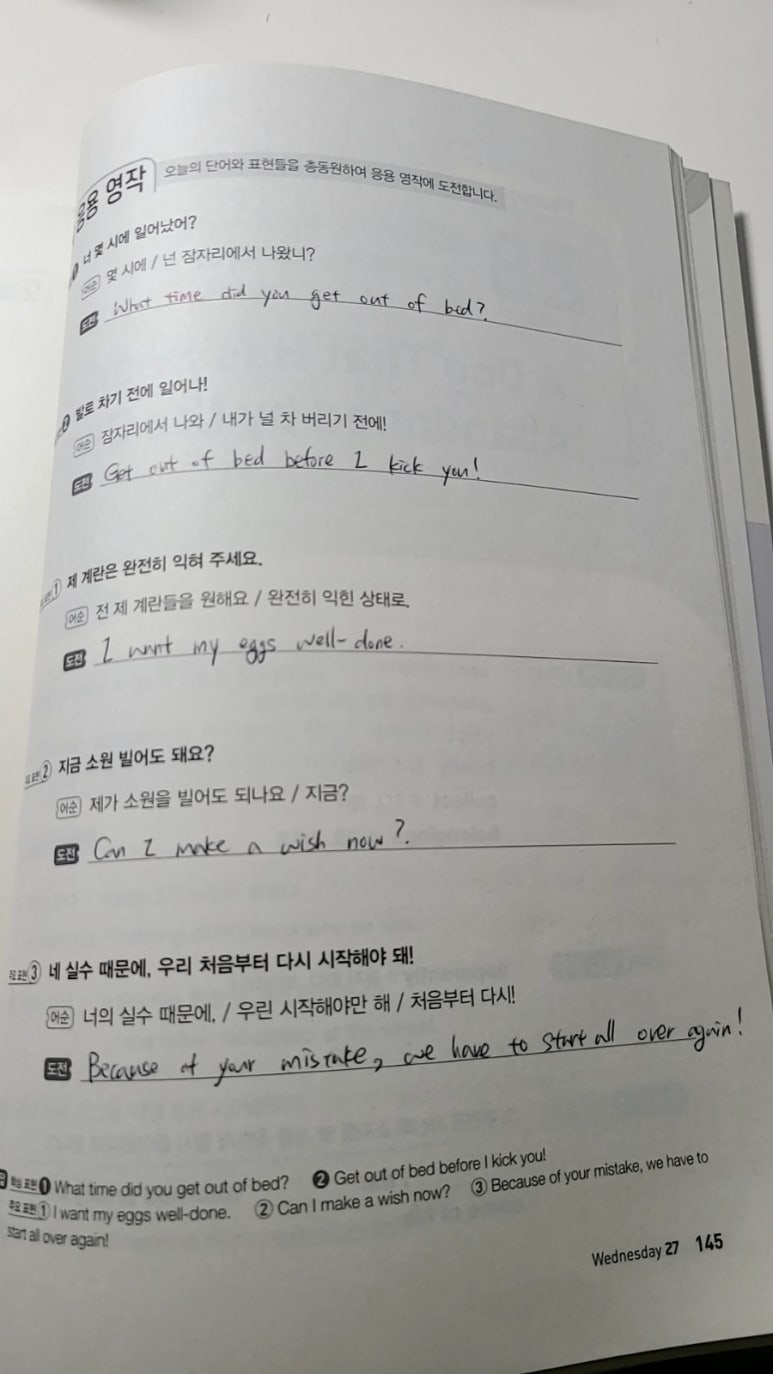 응용 영작 오늘의 단어와 표현들을 총동원하여 응용 영작에 도전합니다.
1 너 몇 시에 일어났어?
어순 몇 시에 / 넌 잠자리에서 나왔니?
도전 What time did you get out of bed?
2 발로 차기 전에 일어나!
어순 잠자리에서 나와 / 내가 널 차 버리기 전에!
도전 Get out of bed before I kick you!
① 제 계란은 완전히 익혀 주세요.
어순 전 제 계란들을 원해요 / 완전히 익힌 상태로.
도전 I want my eggs well-done.
② 지금 소원 빌어도 돼요?
어순 제가 소원을 빌어도 되나요 / 지금?
도전 Can I make a wish now?
③ 네 실수 때문에, 우리 처음부터 다시 시작해야 돼!
어순 너의 실수 때문에, / 우린 시작해야만 해 / 처음부터 다시!
도전 Because of your mistake, we have to start all over again!
핵심 표현 ❶ What time did you get out of bed? ❷ Get out of bed before I kick you!
주요 표현 ① I want my eggs well-done. ② Can I make a wish now? ③ Because of your mistake, we have to
start all over again!
Wednesday 27 145